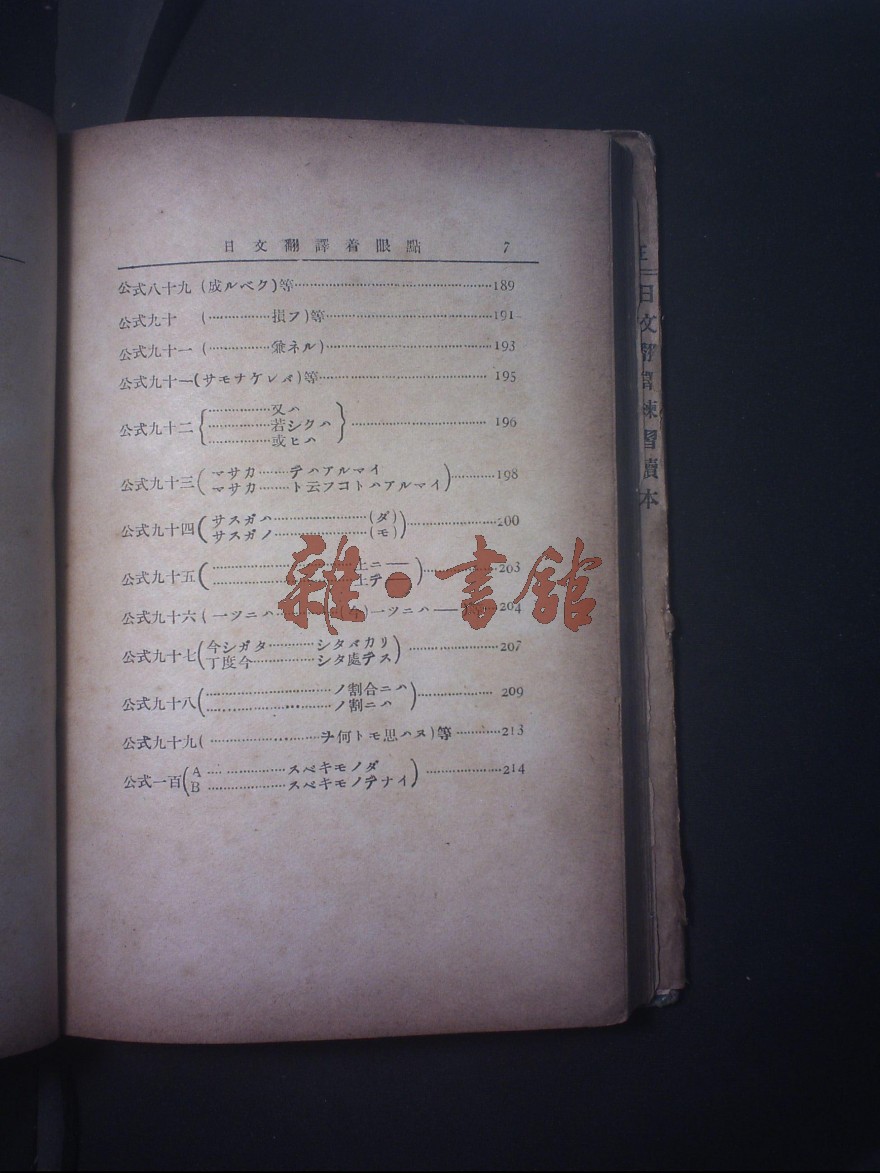 日文翻譯着眼點 7
公式八十九 (成ルベク)等……189
公式九十 (……損フ)等……191
公式九十一 (……兼ネル)……193
公式九十一(サモナケレバ)等……195
公式九十二 {……又ハ
……若シクハ
……或ヒハ}……196
公式九十三(マサカ……デハアルマイ
マサカ……ト云フコトハアルマイ)……198
公式九十四(サスガハ……(ダ)
サスガノ……(モ))……200
公式九十五(……上ニ——
……上デ——)……203
公式九十六(一ツニハ……一ツニハ——……204
公式九十七(今シガタ……シタバカリ
丁度今……シタ處デス)……207
公式九十八(……ノ割合ニハ
……ノ割ニハ)……209
公式九十九(……ヲ何トモ思ハヌ)等……213
公式一百(A……スベキモノダ
B……スベキモノデナイ)……214
雜·書館
日文
練習讀本